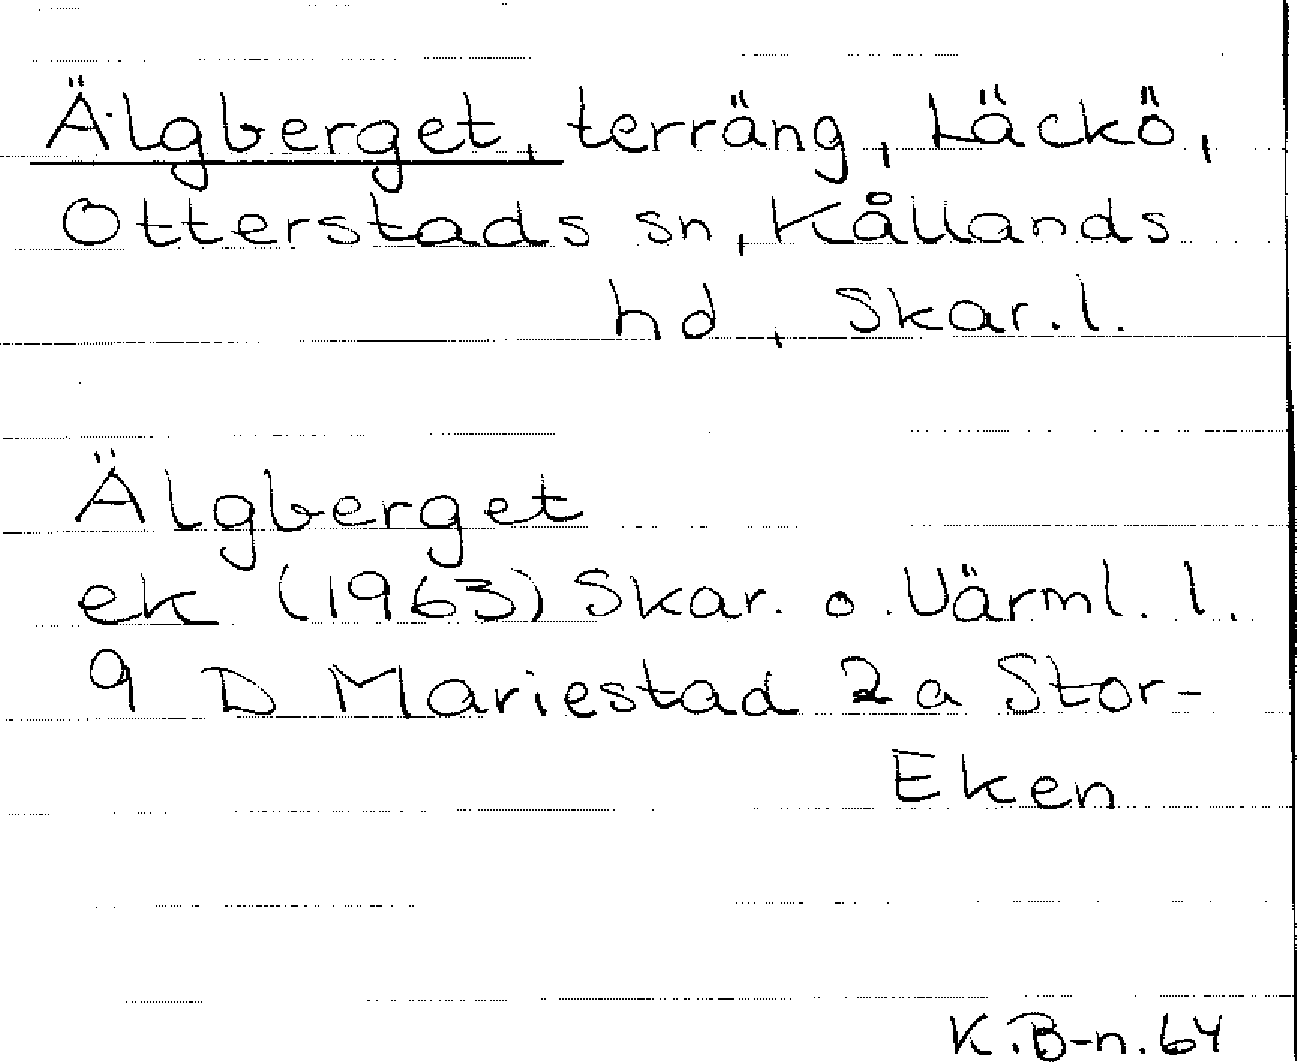 Älgberget, terräng, Läckö,
Otterstads sn, Kållands
hd, Skar. l.
Älgberget
ek (1963) Skar. o. Värml. l.
9 D Mariestad 2a Stor-
Eken
K.B-n. 64